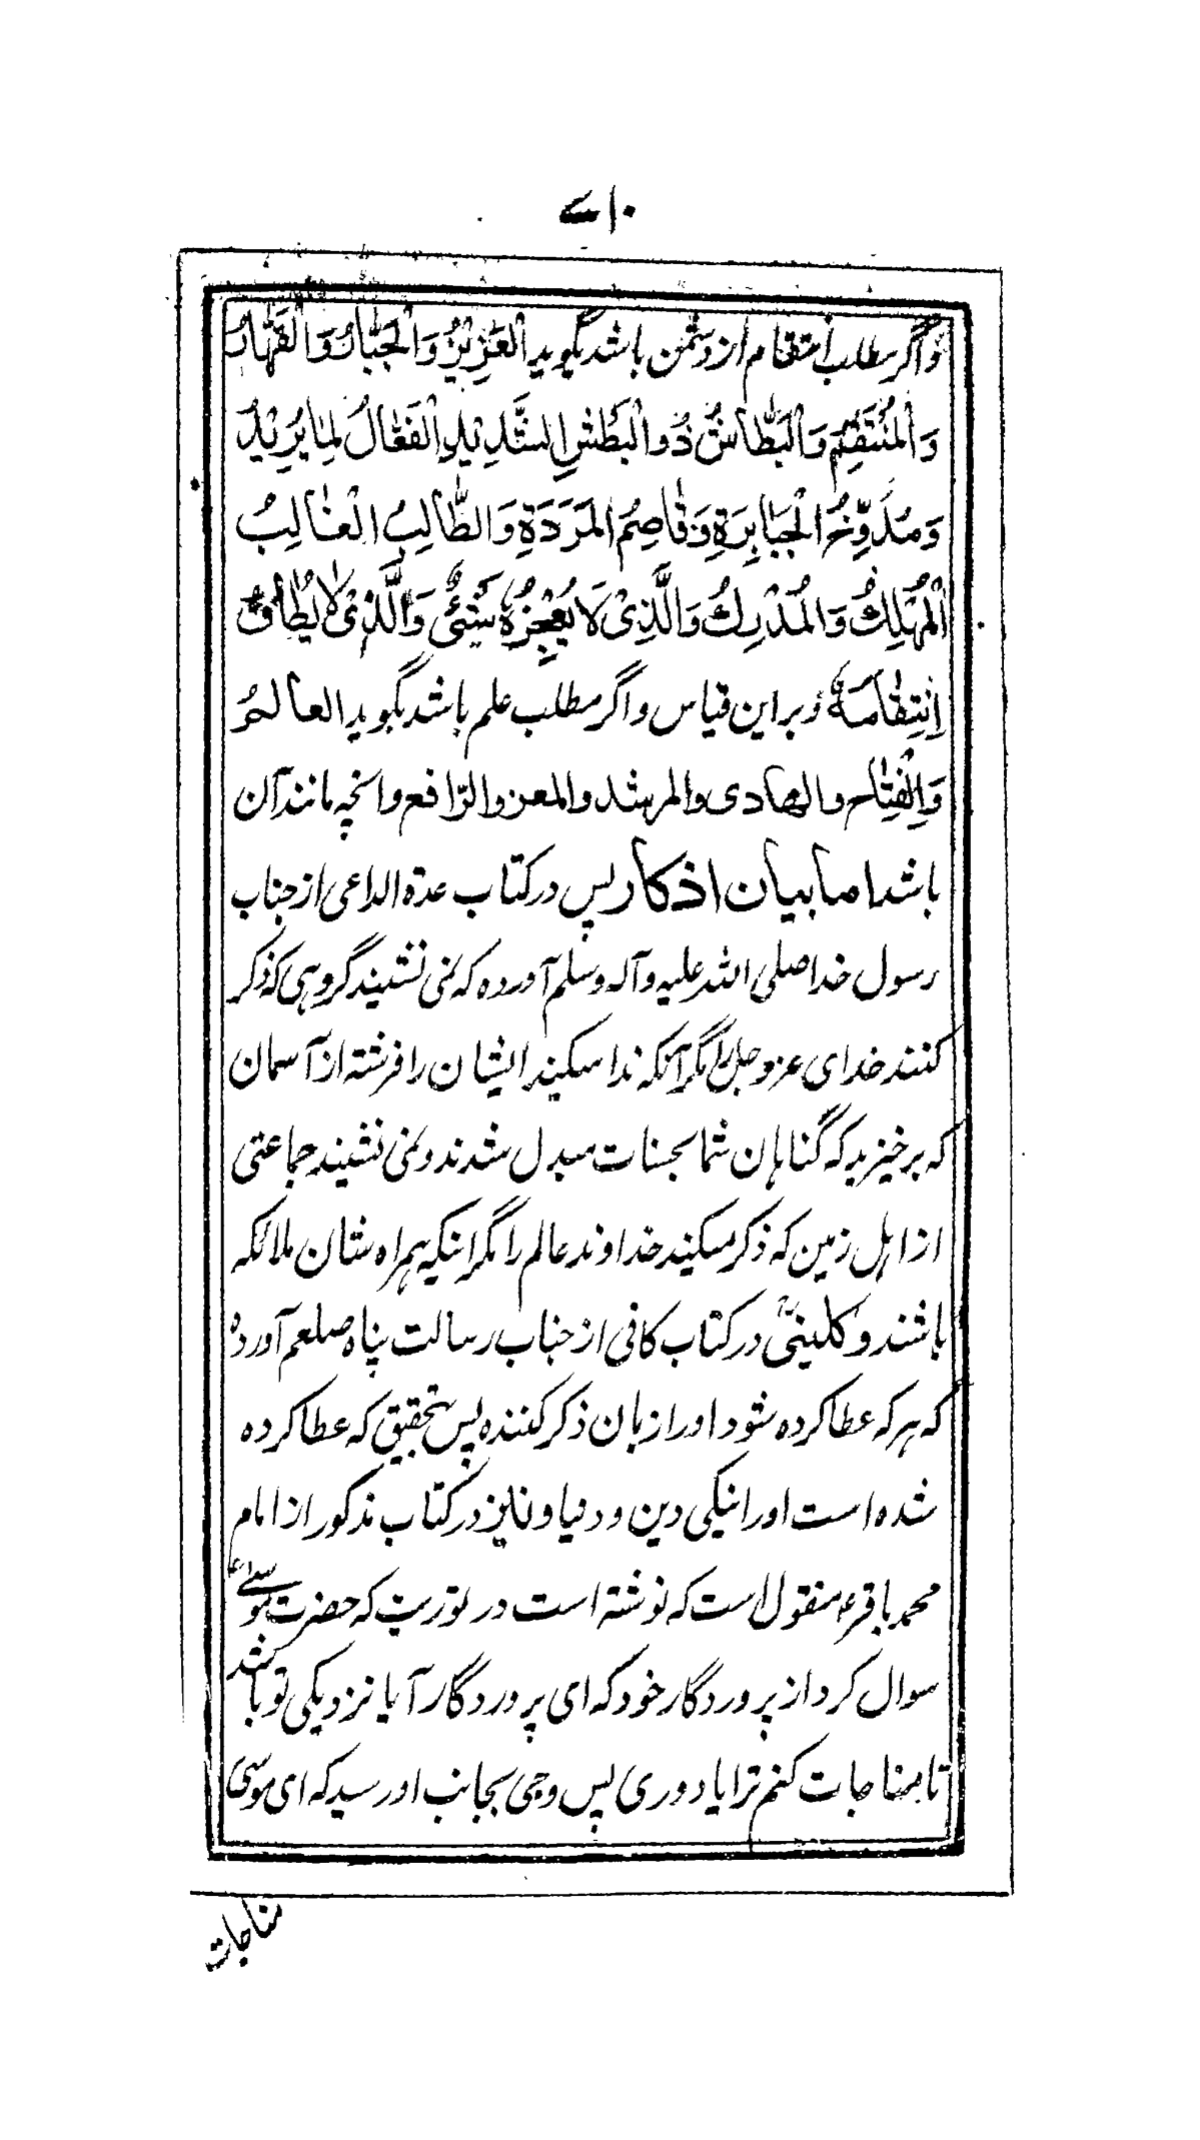 ۷۱۰
و اگر مطلب انتقام از دشمن باشد بگوید اَلْعَزِیْزُ وَالْجَبَّارُ وَالْقَهَّارُ
وَالْمُنْتَقِمُ وَالْبَطَّاشُ ذُو الْبَطْشِ الشَّدِیْدِ الْفَعَّالُ لِمَا یُرِیْدُ
وَمُدَوِّخُ الْجَبَابِرَةِ وَقَاصِمُ الْمَرَدَةِ وَالطَّالِبُ الْغَالِبُ
اَلْمُهْلِكُ وَالْمُدْرِكُ وَالَّذِیْ لَا یُعْجِزُهُ شَیْئٌ وَالَّذِیْ لَا یُطَاقُ
اِنْتِقَامُهٗ وبر این قیاس و اگر مطلب علم باشد بگوید العالمُ
وَالْفَتَّاح والهادی والمرشد والمعز والرّافع وآنچه مانند آن
باشد اما بیان اذکار پس در کتاب عدة الداعی از جناب
رسول خدا صلی الله علیه وآله وسلم آورده که نمی نشیند گروهی که ذکر
کنند خدای عزوجل را مگر آنکه ندا میکند ایشان را فرشته از آسمان
که برخیزید که گناهان شما بحسنات مبدل شدند ونمی نشیند جماعتی
از اهل زمین که ذکر میکنند خداوند عالم را مگر اینکه همراه شان ملائکه
باشند و کلینیؒ در کتاب کافی از جناب رسالت پناه صلعم آورده
که هر که عطا کرده شود او را زبان ذکر کننده پس بتحقیق که عطا کرده
شده است او را نیکی دین و دنیا و نیز در کتاب مذکور از امام
محمد باقرؑ منقول است که نوشته است در توریت که حضرت موسیؑ
سوال کرد از پروردگار خود که ای پروردگار آیا نزدیکی تو باشد
تا مناجات کنم ترا یا دوری پس وحی بجانب او رسید که ای موسی
مناجات